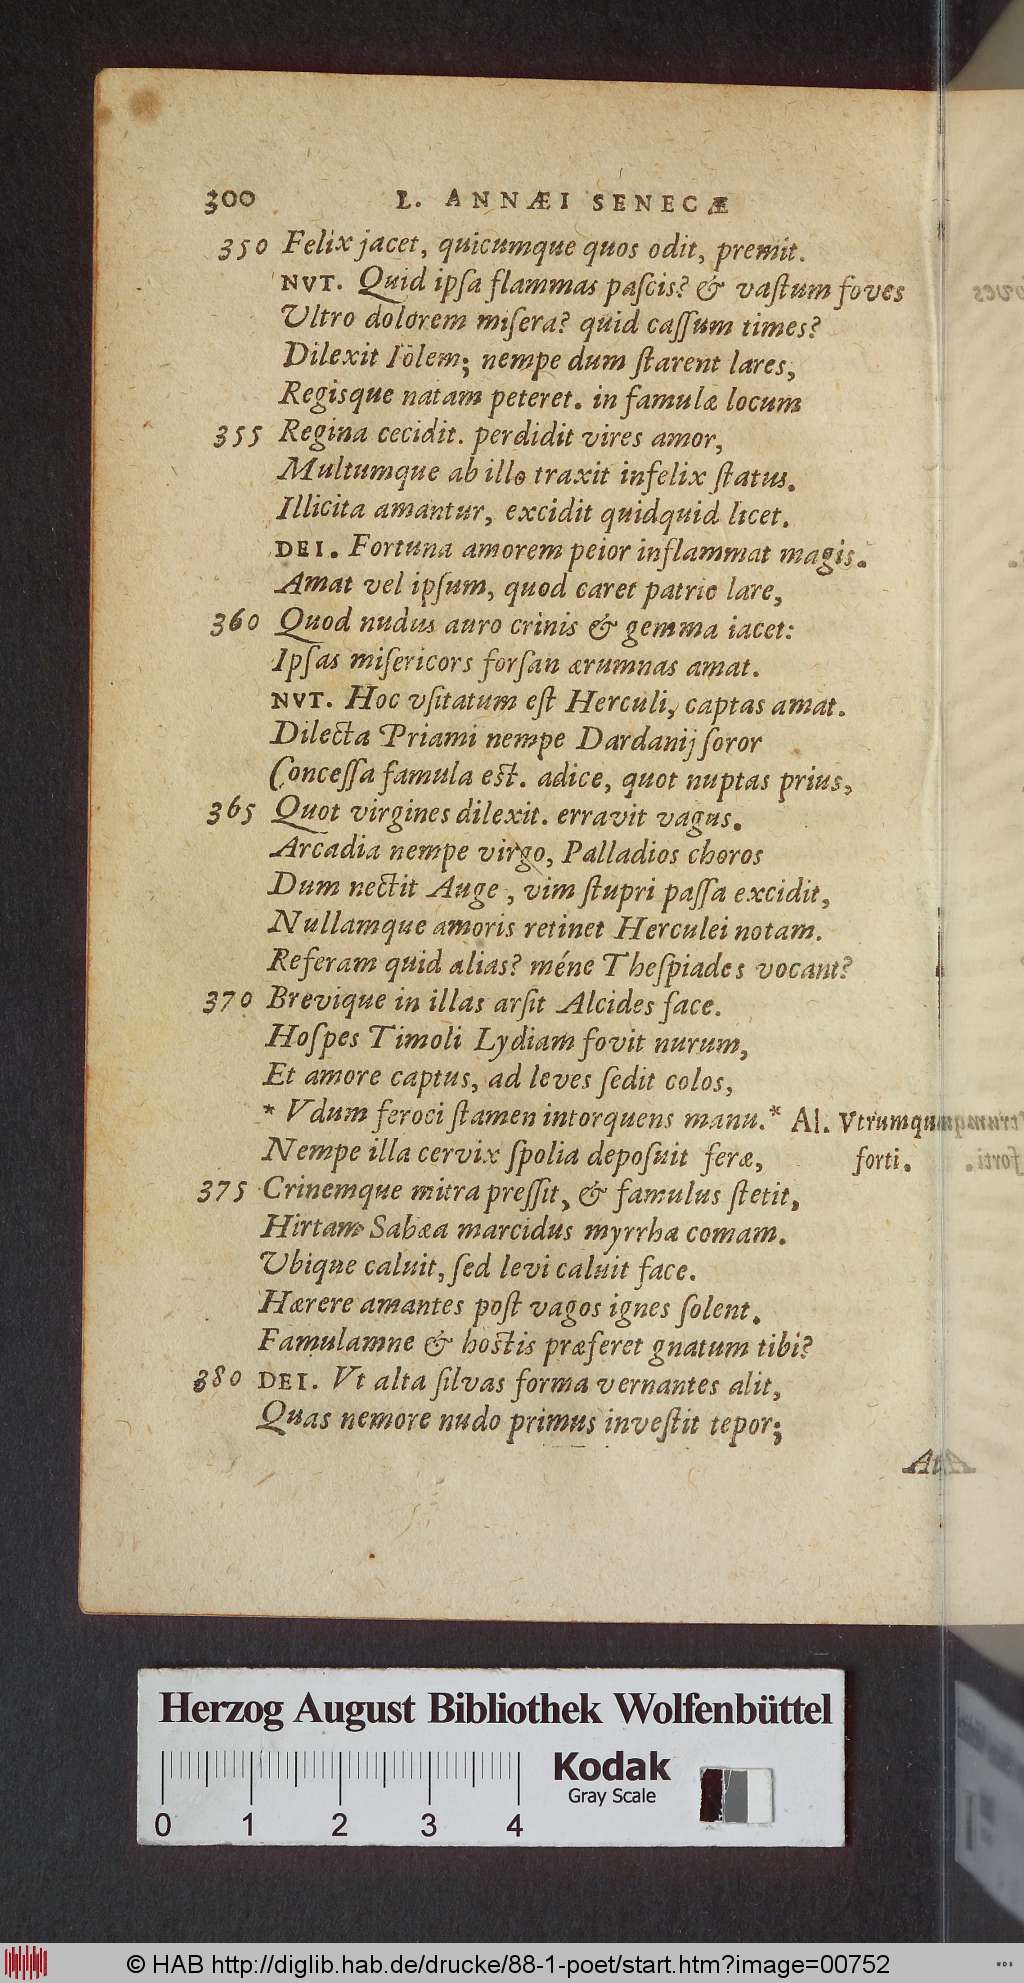 300 L. ANNÆI SENECÆ
350 Felix jacet, quicumque quos odit, premit.
NVT. Quid ipſa flammas paſcis? & vaſtum foves
Ultro dolorem miſera? quid caſſum times?
Dilexit Iölem; nempe dum ſtarent lares,
Regisque natam peteret. in famulæ locum
355 Regina cecidit. perdidit vires amor,
Multumque ab illo traxit infelix ſtatus.
Illicita amantur, excidit quidquid licet.
DEI. Fortuna amorem peior inflammat magis.
Amat vel ipſum, quod caret patrio lare,
360 Quod nudus auro crinis & gemma iacet:
Ipſas miſericors forſan ærumnas amat.
NVT. Hoc vſitatum eſt Herculi, captas amat.
Dilecta Priami nempe Dardanij ſoror
Conceſſa famula eſt. adice, quot nuptas prius,
365 Quot virgines dilexit. erravit vagus.
Arcadia nempe virgo, Palladios choros
Dum nectit Auge, vim ſtupri paſſa excidit,
Nullamque amoris retinet Herculei notam.
Referam quid alias? méne Theſpiades vocant?
370 Brevique in illas arſit Alcides face.
Hoſpes Timoli Lydiam fovit nurum,
Et amore captus, ad leves ſedit colos,
* Vdum feroci ſtamen intorquens manu.* Al. Vtrumqu
Nempe illa cervix ſpolia depoſuit feræ, forti.
375 Crinemque mitra preſſit, & famulus ſtetit,
Hirtam Sabæa marcidus myrrha comam.
Ubique caluit, ſed levi caluit face.
Hærere amantes poſt vagos ignes ſolent.
Famulamne & hoſtis præferet gnatum tibi?
380 DEI. Vt alta ſilvas forma vernantes alit,
Quas nemore nudo primus inveſtit tepor;
At
Herzog August Bibliothek Wolfenbüttel
Kodak
Gray Scale
0 1 2 3 4
© HAB http://diglib.hab.de/drucke/88-1-poet/start.htm?image=00752